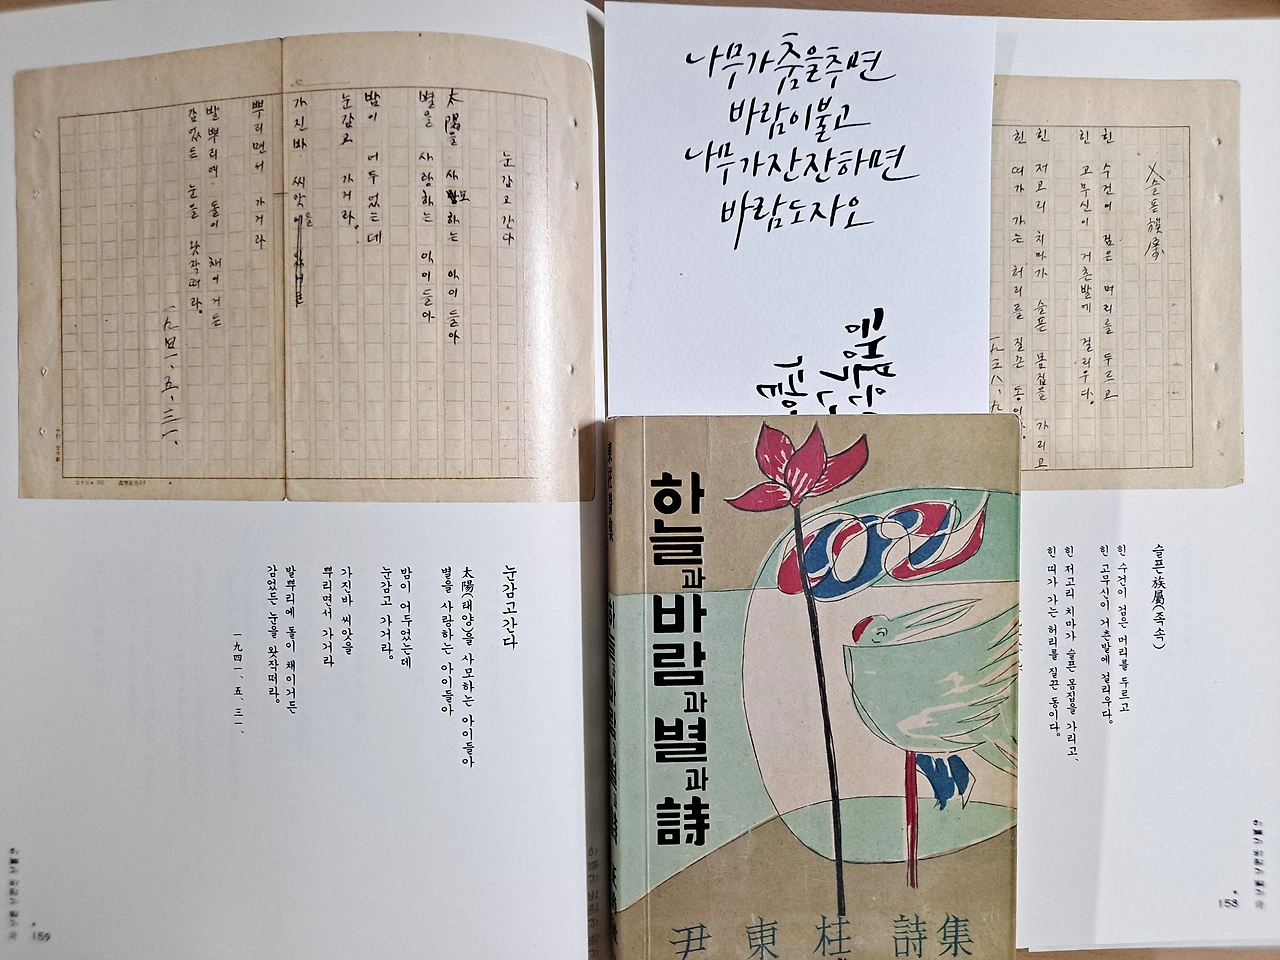 눈감고간다
太陽을 사모하는 아이들아
별을 사랑하는 아이들아
밤이 어두웠는데
눈감고 가거라.
가진바 씨앗을
뿌리면서 가거라
발뿌리에 돌이 채이거든
감었든 눈을 왓작떠라.
一九四一、五、三一、
눈감고간다
太陽(태양)을 사모하는 아이들아
별을 사랑하는 아이들아
밤이 어두웠는데
눈감고 가거라.
가진바 씨앗을
뿌리면서 가거라
발뿌리에 돌이 채이거든
감었든 눈을 왓작떠라.
一九四一、五、三一、
159
나무가춤을추면
바람이불고
나무가잔잔하면
바람도자오
하늘과바람과별과詩
尹東柱 詩集
슬픈族属
힌 수건이 검은 머리를 두르고
힌 고무신이 거츤발에 걸리우다.
힌 저고리 치마가 슬픈 몸집을 가리고
힌 띠가 가는 허리를 질끈 동이다.
一九三八、九
슬픈族屬(족속)
힌 수건이 검은 머리를 두르고
힌 고무신이 거츤발에 걸리우다.
힌 저고리 치마가 슬픈 몸집을 가리고、
힌 띠가 가는 허리를 질끈 동이다.
158